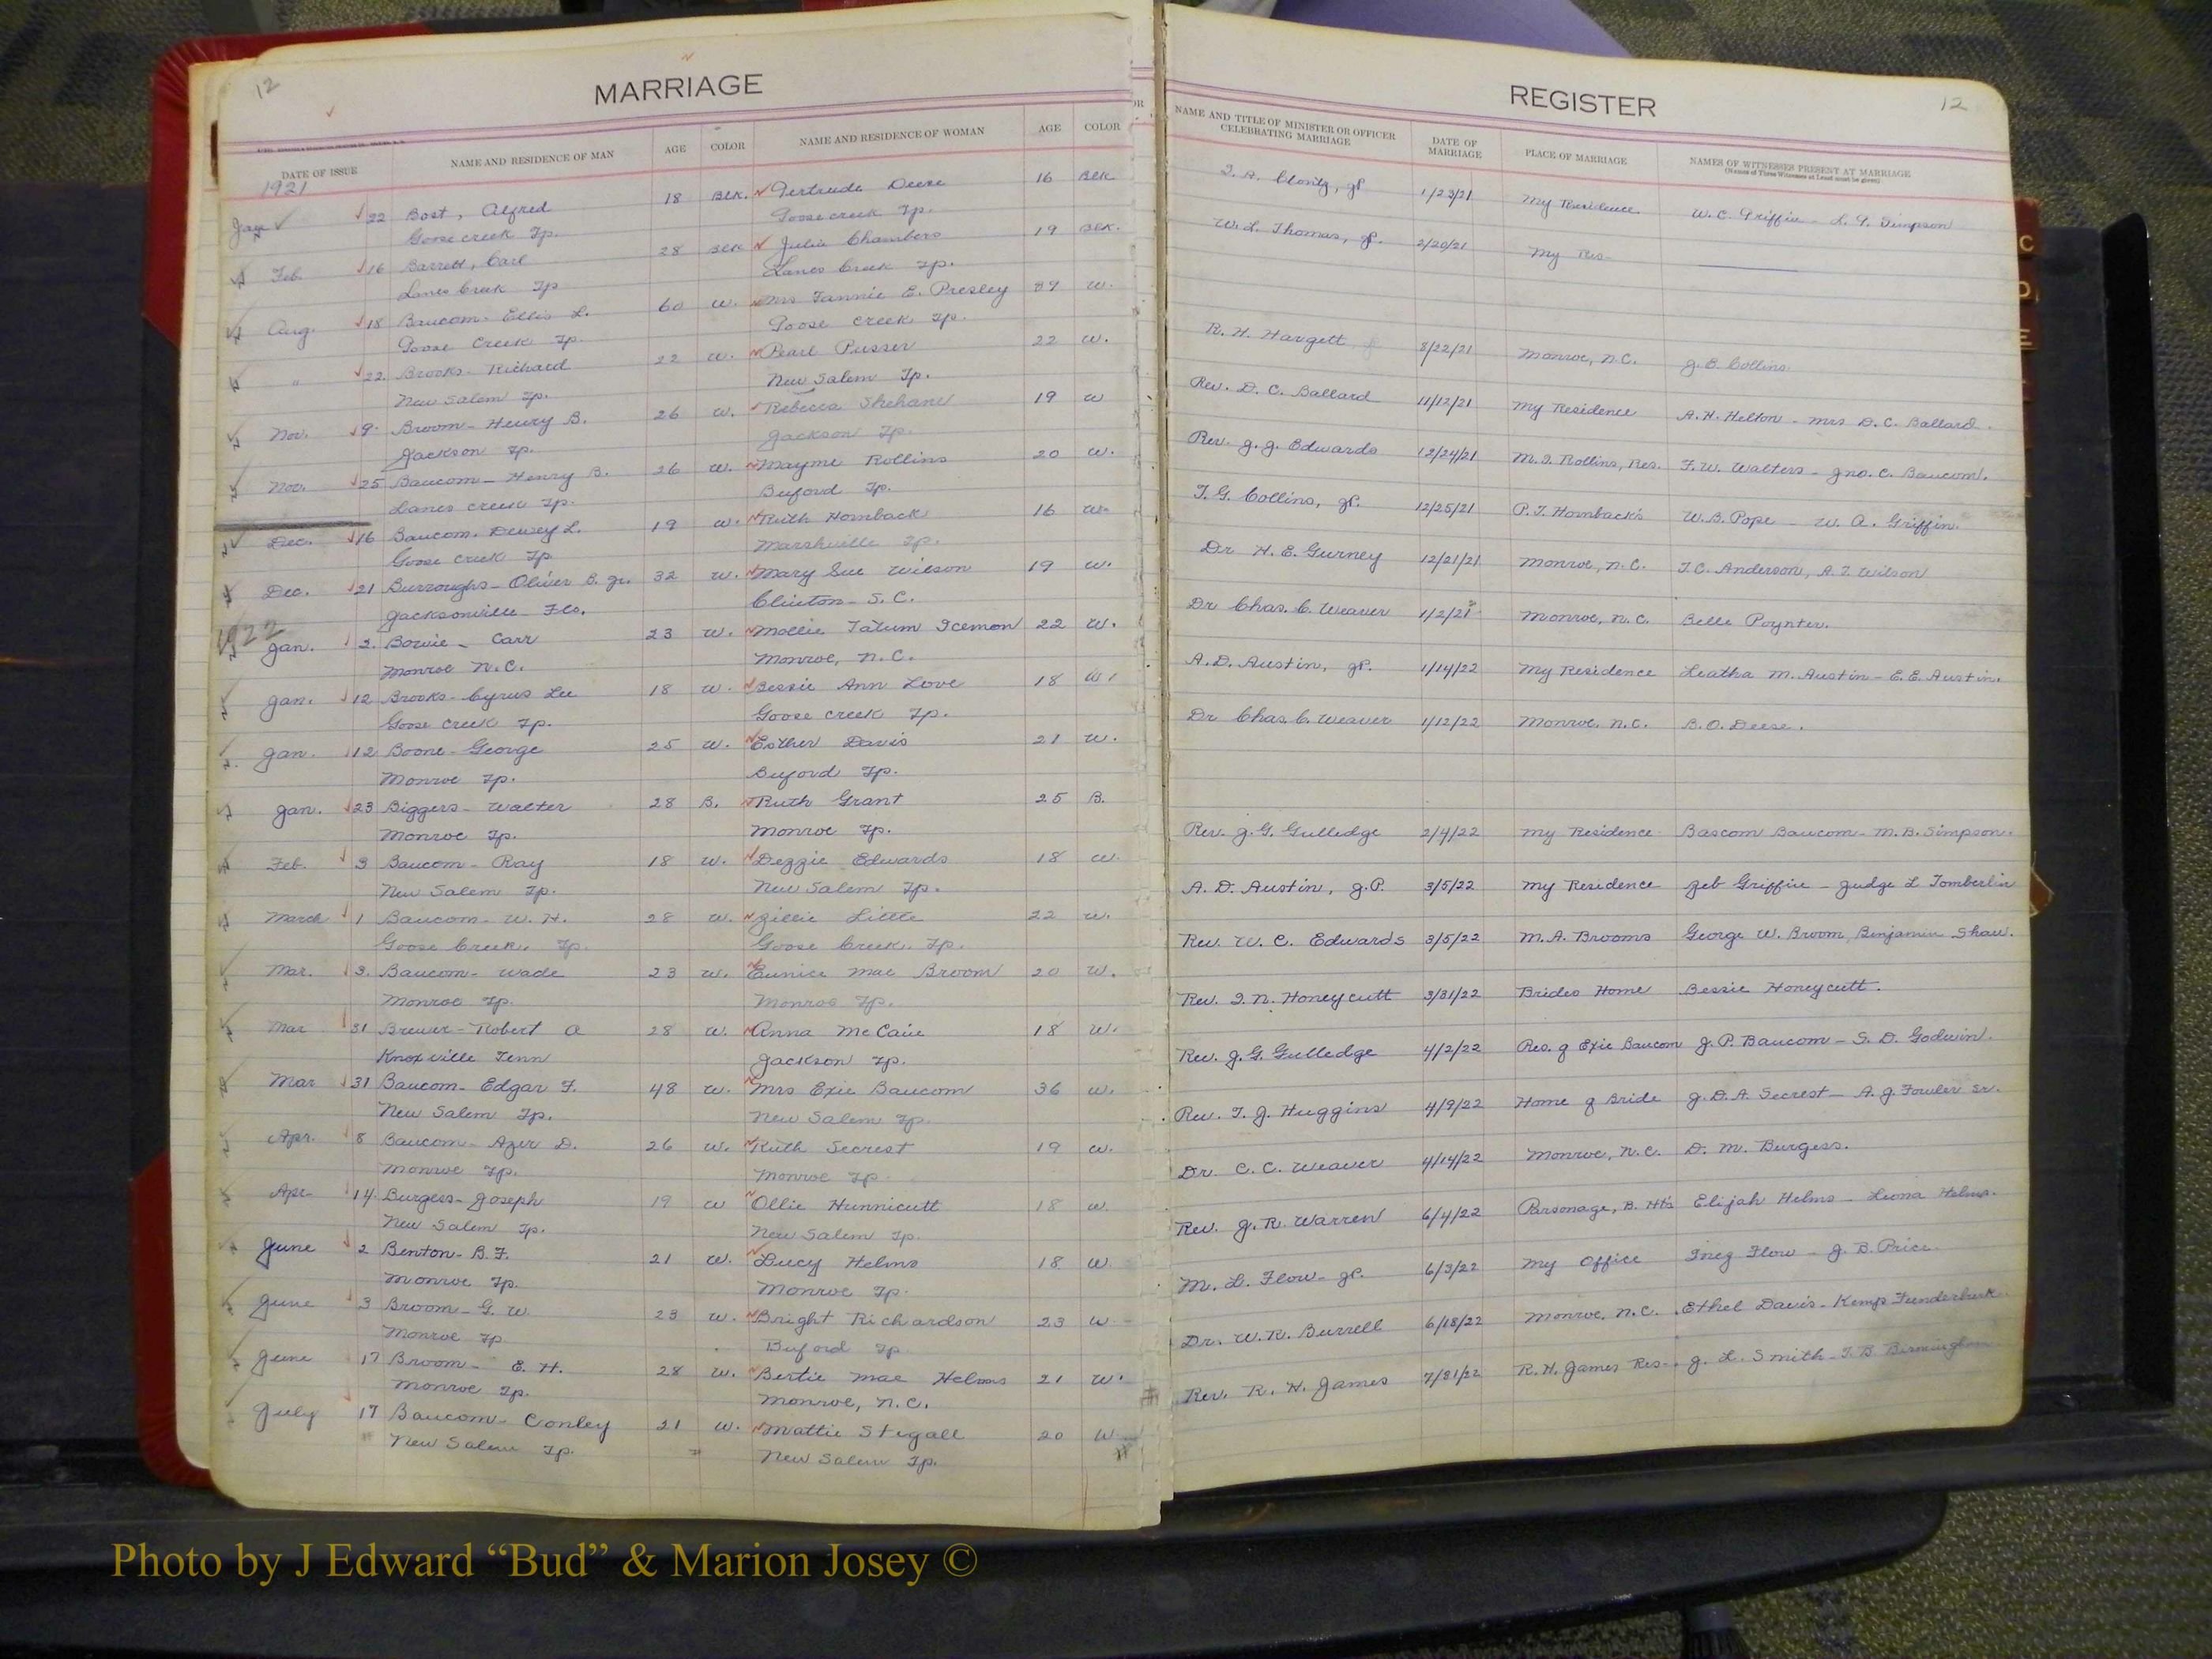 12
MARRIAGE
DATE OF ISSUE NAME AND RESIDENCE OF MAN AGE COLOR NAME AND RESIDENCE OF WOMAN AGE COLOR
1921
Jan 22 Bost, Alfred 18 Blk. Gertrude Deese 16 Blk.
Goose creek Tp. Goose creek Tp.
Feb. 16 Barrett, Carl 28 Blk Julia Chambers 19 Blk.
Lanes Creek Tp Lanes Creek Tp.
Aug. 18 Baucom- Ellis L. 60 w. Mrs Fannie E. Presley 39 w.
Goose Creek Tp. Goose Creek Tp.
" 22. Brooks- Richard 22 w. Pearl Pusser 22 w.
New Salem Tp. New Salem Tp.
Nov. 9 Broom- Henry B. 26 w. Rebecca Shehane 19 w
Jackson Tp. Jackson Tp.
Nov. 25 Baucom- Henry B. 26 w. Mayme Rollins 20 w.
Lanes creek Tp. Buford Tp.
Dec. 16 Baucom. Dewey L. 19 w. Ruth Hornback 16 w.
Goose creek Tp Marshville Tp.
Dec. 21 Burroughs- Oliver B. Jr. 32 w. Mary Sue Wilson 19 w.
Jacksonville Fla. Clinton- S.C.
1922
Jan. 2. Bowie - Carr 23 w. Mollie Tatum Icemon 22 w.
Monroe N.C. Monroe, N.C.
Jan. 12 Brooks- Cyrus Lee 18 w. Bessie Ann Love 18 w.
Goose creek Tp. Goose creek Tp.
Jan. 12 Boone- George 25 w. Esther Davis 21 w.
Monroe Tp. Buford Tp.
Jan. 23 Biggers- Walter 28 B. Ruth Grant 25 B.
Monroe Tp. Monroe Tp.
Feb. 3 Baucom- Ray 18 w. Dezzie Edwards 18 w.
New Salem Tp. New Salem Tp.
March 1 Baucom- W. H. 28 w. Zillie Little 22 w.
Goose Creek. Tp. Goose Creek. Tp.
Mar. 3. Baucom- Wade 23 w. Eunice Mae Broom 20 w.
Monroe Tp. Monroe Tp.
Mar 31 Brewer- Robert A 28 w. Anna McCain 18 w.
Knoxville Tenn Jackson Tp.
Mar 31 Baucom- Edgar F. 48 w. Mrs Exie Baucom 36 w.
New Salem Tp. New Salem Tp.
Apr. 8 Baucom- Azer D. 26 w. Ruth Secrest 19 w.
Monroe Tp. Monroe Tp.
Apr- 14. Burgess- Joseph 19 w Ollie Hunnicutt 18 w.
New Salem Tp. New Salem Tp.
June 2 Benton- B.F. 21 w. Lucy Helms 18 w
Monroe Tp. Monroe Tp.
June 3 Broom- G. W. 23 w. Bright Richardson 23 w
Monroe Tp Buford Tp
June 17 Broom- E. H. 28 w. Bertie Mae Helms 21 w.
Monroe Tp. Monroe, N.C.
July 17 Baucom- Conley 21 w. Mattie Stegall 20 w
New Salem Tp. New Salem Tp.
REGISTER 12
NAME AND TITLE OF MINISTER OR OFFICER CELEBRATING MARRIAGE DATE OF MARRIAGE PLACE OF MARRIAGE NAMES OF WITNESSES PRESENT AT MARRIAGE
(Names of Three Witnesses at Least must be given)
I. A. Clontz, JP 1/23/21 My Residence. W. C. Griffin - L. P. Simpson
W. L. Thomas, JP. 2/20/21 My Res-
R. H. Hargett 8/22/21 Monroe, N.C. J. E. Collins.
Rev. D. C. Ballard 11/12/21 My Residence A. H. Helton - Mrs D. C. Ballard.
Rev. J. J. Edwards 12/24/21 M. I. Rollins, Res. F. W. Walters - Jno. C. Baucom.
T. G. Collins, JP. 12/25/21 P. T. Hornback's W. B. Pope - W. A. Griffin.
Dr H. E. Gurney 12/21/21 Monroe, N.C. T. C. Anderson, A. Z. Wilson
Dr Chas. C. Weaver 1/2/21 2 Monroe, N.C. Belle Poynter.
A. D. Austin, JP. 1/14/22 My Residence Leatha M. Austin- E.E. Austin.
Dr Chas. C. Weaver 1/12/22 Monroe, N.C. B. O. Deese.
Rev. J. G. Gulledge 2/4/22 My Residence Bascom Baucom- M. B. Simpson.
A. D. Austin, J.P. 3/5/22 My Residence Zeb Griffin - Judge L Tomberlin
Rev. W. C. Edwards 3/5/22 M. A. Brooms George W. Broom, Benjamin Shaw.
Rev. I. N. Honeycutt 3/31/22 Brides Home Bessie Honeycutt.
Rev. J. G. Gulledge 4/2/22 Res. of Exie Baucom J. P. Baucom - S. D. Godwin.
Rev. T. J. Huggins 4/9/22 Home of Bride J. D. A. Secrest- A. J. Fowler Sr.
Dr. C. C. Weaver 4/14/22 Monroe, N.C. D. M. Burgess.
Rev. J. R. Warren 6/4/22 Parsonage, B. Hts Elijah Helms - Leona Helms.
M. L. Flow- JP. 6/3/22 My Office Inez Flow - J. B. Price.
Dr. W. R. Burrell 6/18/22 Monroe, N.C. Ethel Davis- Kemp Funderburk
Rev. R. H. James 7/21/22 R. H. James Res-. J. L. Smith- T. B. Birmingham
C
D
E
Photo by J Edward “Bud” & Marion Josey ©